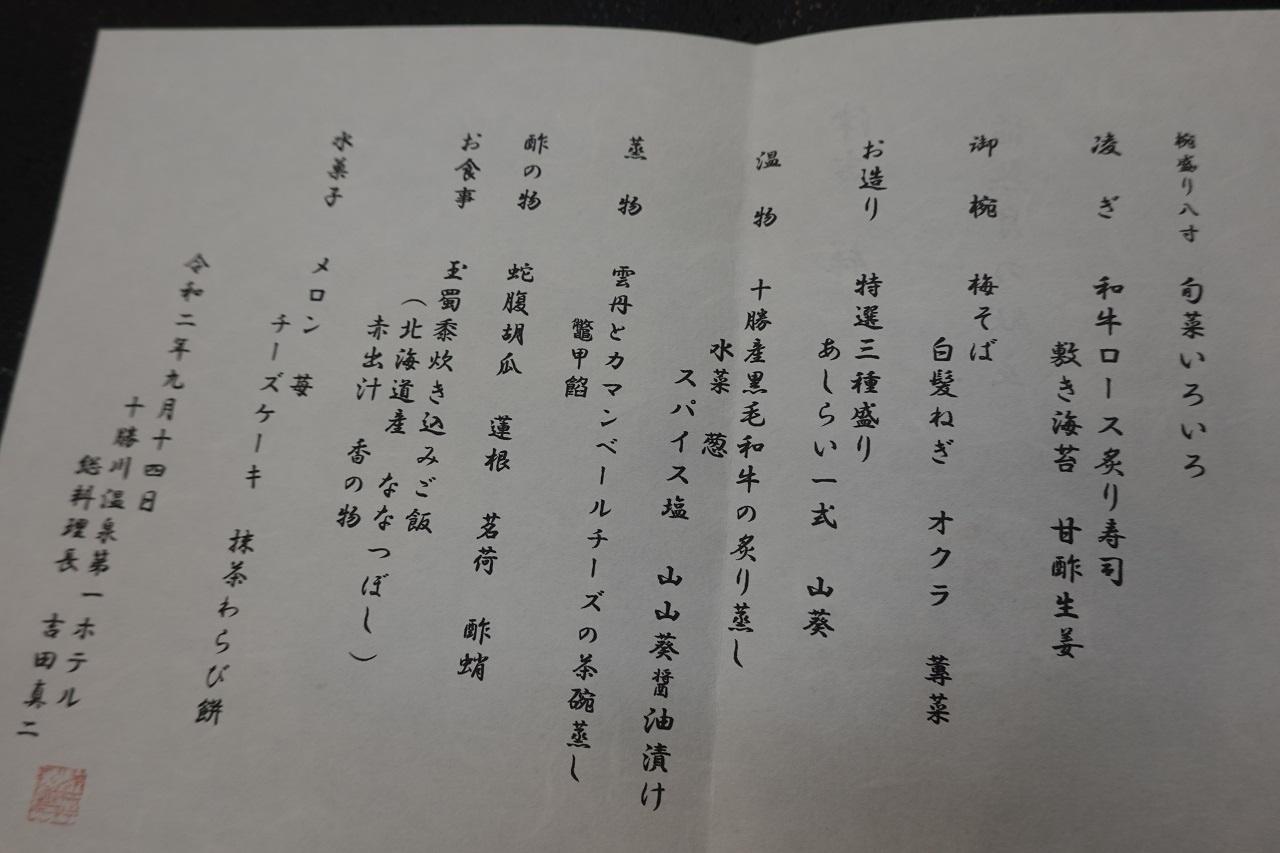 椀盛り八寸　旬菜いろいろ
凌ぎ　和牛ロース炙り寿司
敷き海苔　甘酢生姜
御椀　梅そば
白髪ねぎ　オクラ　蓴菜
お造り　特選三種盛り
あしらい一式　山葵
温物　十勝産黒毛和牛の炙り蒸し
水菜　葱
スパイス塩　山山葵醤油漬け
蒸物　雲丹とカマンベールチーズの茶碗蒸し
鼈甲餡
酢の物　蛇腹胡瓜　蓮根　茗荷　酢蛸
お食事　玉蜀黍炊き込みご飯
（北海道産　ななつぼし）
赤出汁　香の物
水菓子　メロン　苺
チーズケーキ　抹茶わらび餅
令和二年九月十四日
十勝川温泉第一ホテル
総料理長　吉田真二